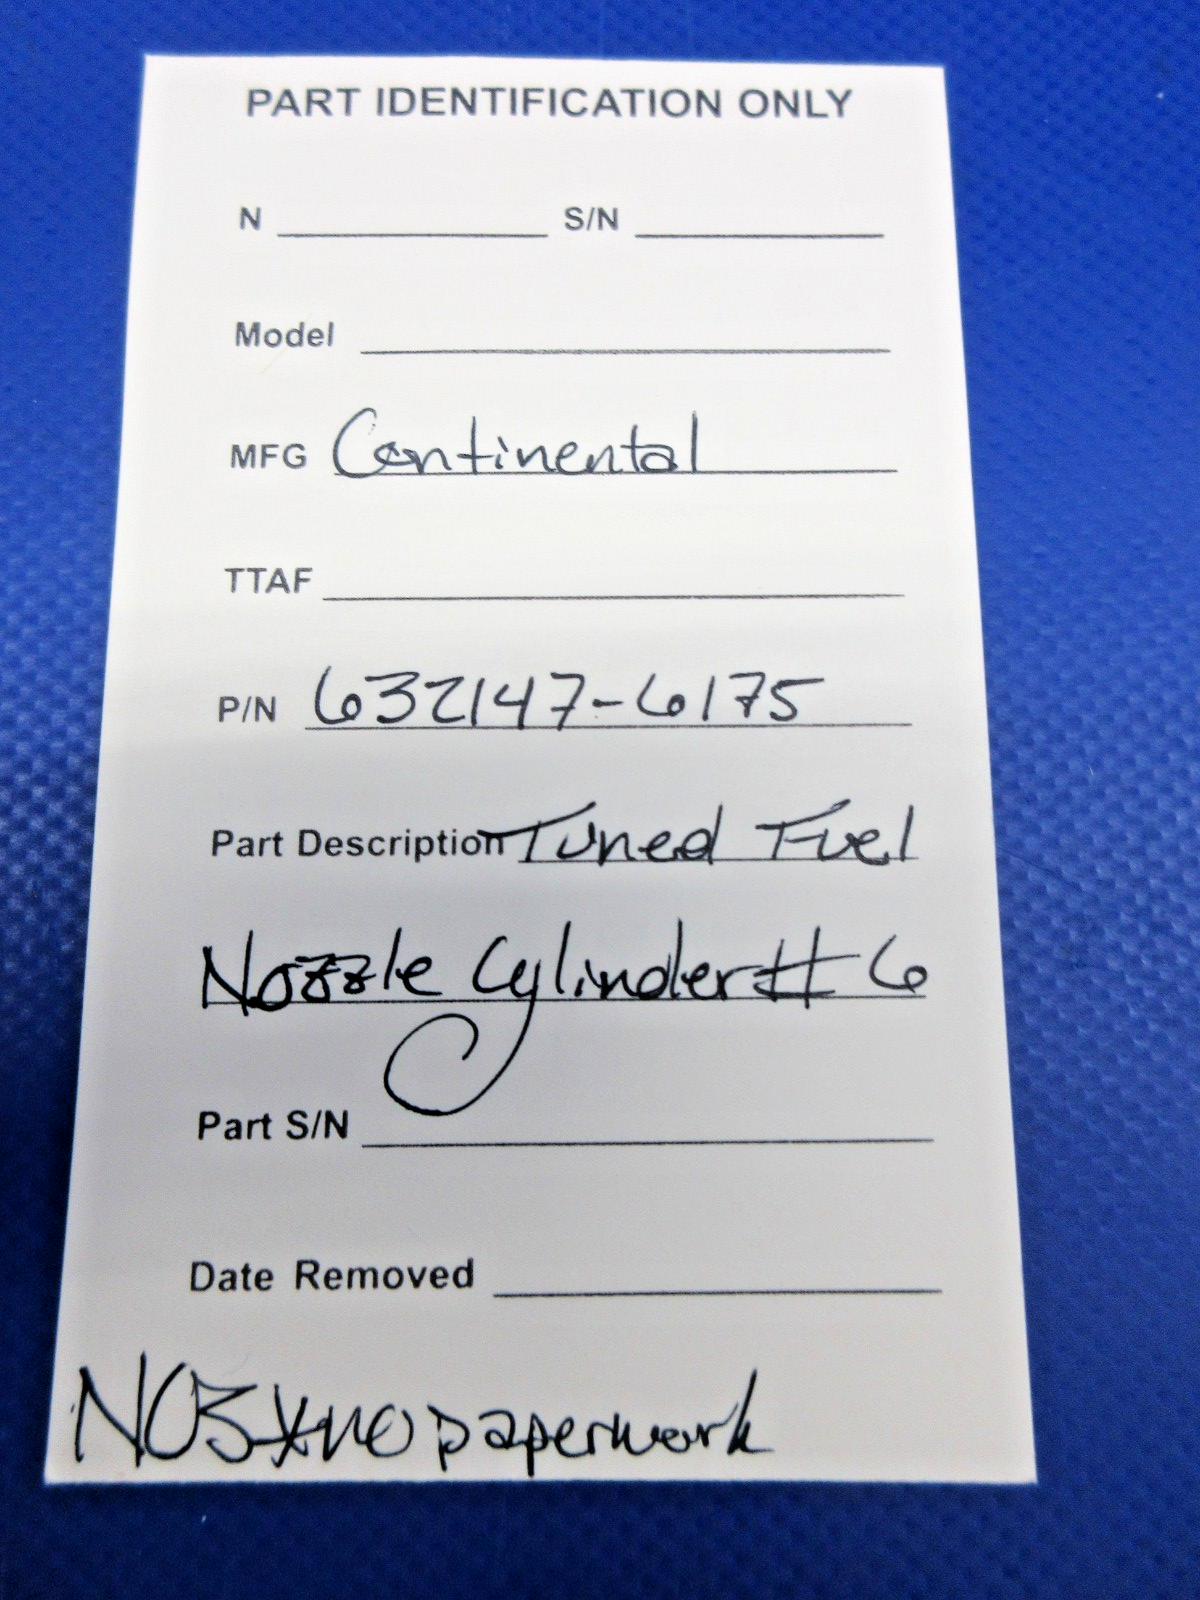 PART IDENTIFICATION ONLY
N S/N
Model
MFG Continental
TTAF
P/N 632147-6175
Part Description Tuned Fuel
Nozzle Cylinder # 6
Part S/N
Date Removed
NOS * no paperwork